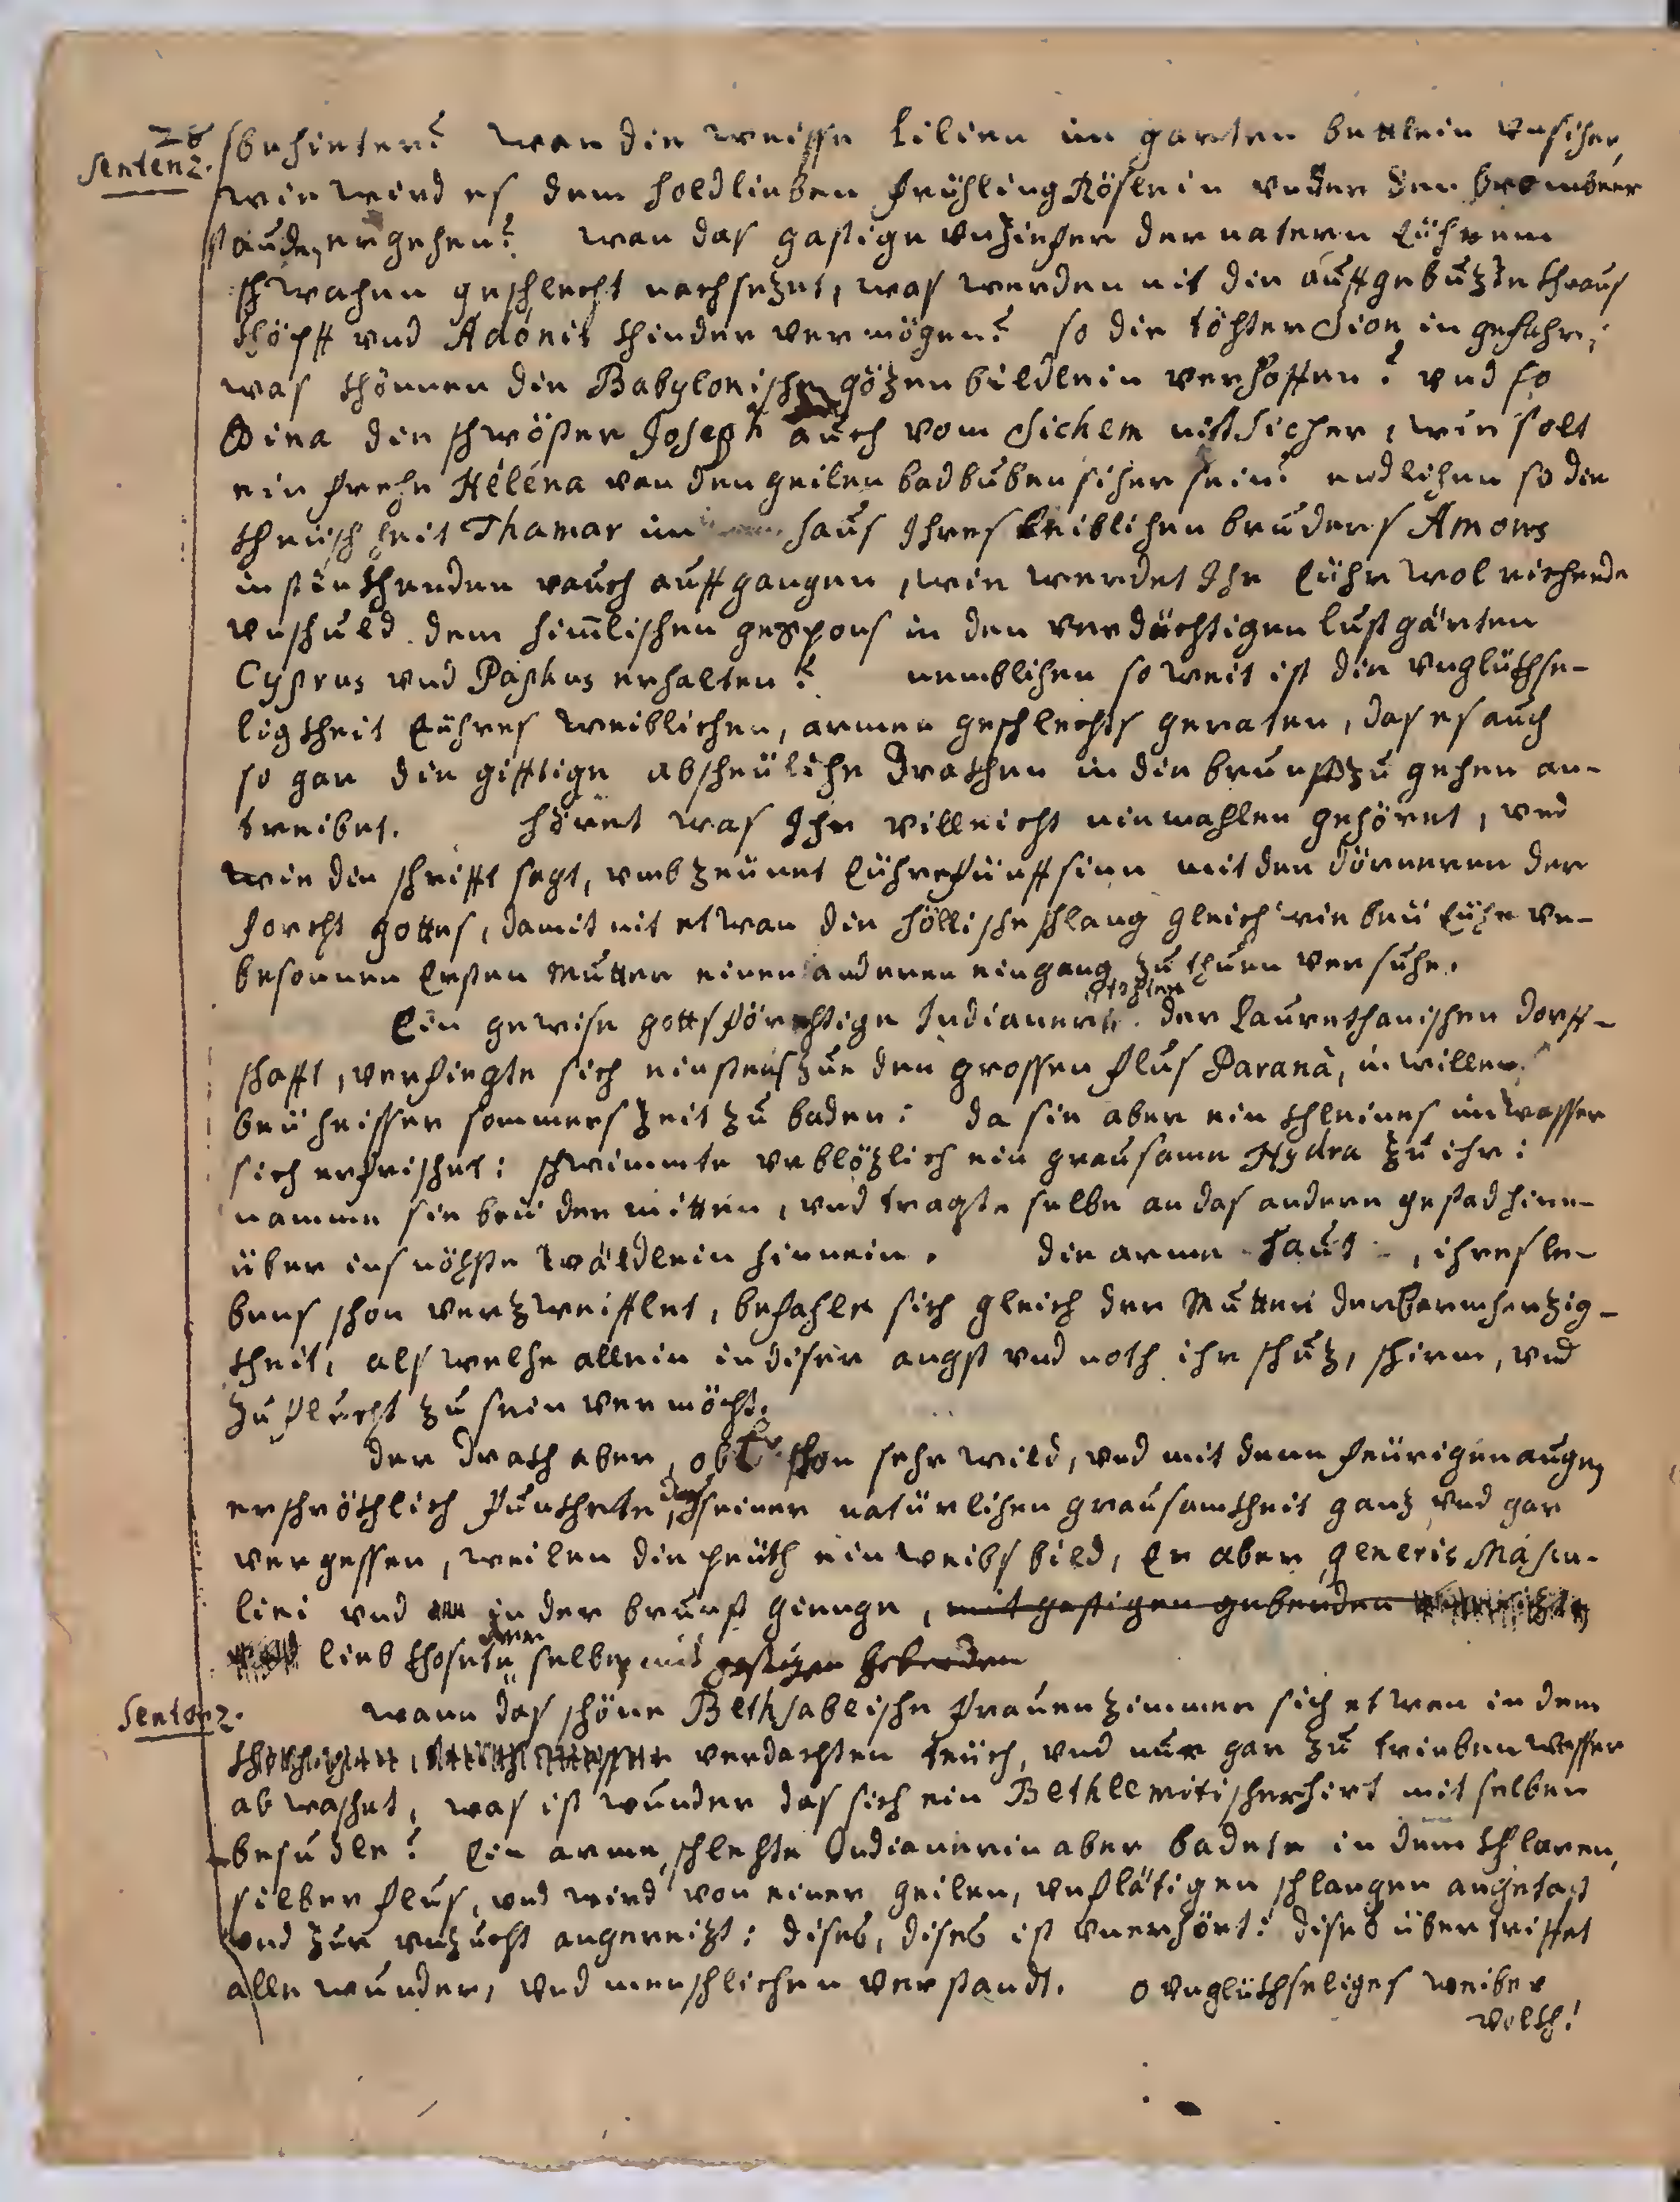 28
Sentenz.
sbehinter? wan die weisse Lilien im garten bettlein unsicher,
wie wird es dem holdlieben frühling Röslein under den brombeer
stauden ergehen? wan das gastige unzifer der natern Eührem
schwachen geschlecht nachsezet, was werden nit die auffgebuzte khraus
khöpff und Adonis khinder vermögen? so die töchter Sion in gefahr,
was khönnen die Babylonische gözenbildlein verhoffen? und so
Dina der schwöster Joseph auch vom Sichem nit sicher, wie solt
ein freche Helena von den geilen badbuben sicher sein? endlichen so die
kheüschheit Thamar im haus Ihres leiblichen bruders Amons
in stinkhenden rauch auffgangen, wie werdet Ihr Eühr wol riechende
unschuld dem himlischen gespons in den verdächtigen lustgärten
Cyprus und Paphus erhalten? nemblichen so weit ist die unglükhse-
ligkheit Eühres weiblichen, armen geschlechts geraten, das es auch
so gar die gifftige abscheüliche drakhen in die brunst zu gehen an-
treibet. höret was Ihr villeicht niemahlen gehöret, und
wie die schrifft sagt, umbzeünet Eühre fünff sinn mit den dörneren der
forcht gottes, damit nit etwan die höllische schlang gleich wie beü Eühr un-
besonnen Ersten Mutter einen anderen eingang zu thuen versuche.
Ein gewise gottsförchtige Indianerin der Laurethanischen dorff-
schafft, verfiegte sich einstens zue den grossen flus Paranà, in willen
beü heisser sommers zeit zu baden: da sie aber ein khleines im wasser
sich erfrischet: schwimmte urblözlich ein grausame Hydra zu ihr:
namme sie beü der mitten, und tragte selbe an das andere gestad hinn-
über ins nöchste wäldlein hinnein. die arme haut, ihres le-
bens schon verzweifflet, befahle sich gleich der Mutter der barmherzig-
kheit, als welche allein in diser angst und noth ihr schuz, schirm, und
zuflucht zu sein vermöcht.
der drakh aber, ob Er schon sehr wild, und mit denn feürigen augen
erschrökhlich funkhete, doch seiner natürlichen grausamkheit ganz und gar
vergessen, weilen die peüth ein weibsbild, Er aber generis Mascu-
lini und in der brunst gienge, mit gastigen geberden
lieb khosete selben mit gastigen geberden
Sentenz.
wann das schöne Bethsabeische frauenzimmer sich etwan in dem
verdachten teüch, und nur gar zu trieben wasser
abwaschet, was ist wunder das sich ein Bethlemitischer hirt mit selben
besudle? Ein arme, schlechte Indianerin aber badete in dem khlaren,
silber flus, und wird von einer geilen, unflätigen schlangen angetast
und zur unzucht angereizt: dises, dises ist unerhört: dises übertriffet
alle wunder, und menschlichen verstandt. o unglükhseliges weiber
volkh!